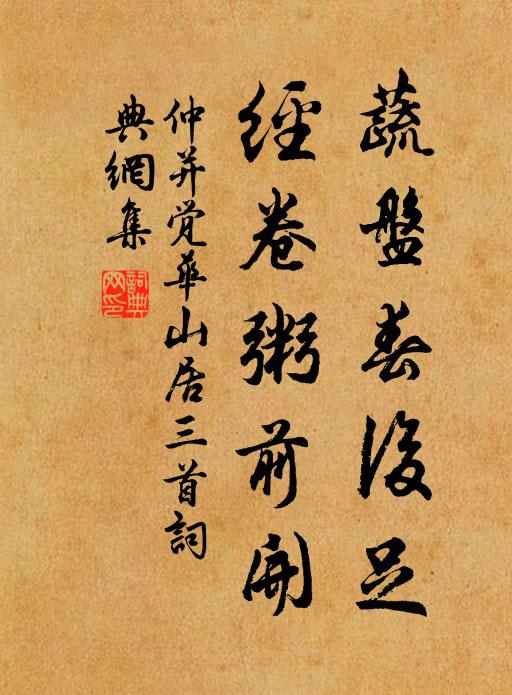 蔬盤春後足
經卷粥前開
仲并覚華山居三首詞
典網集
詞典網印